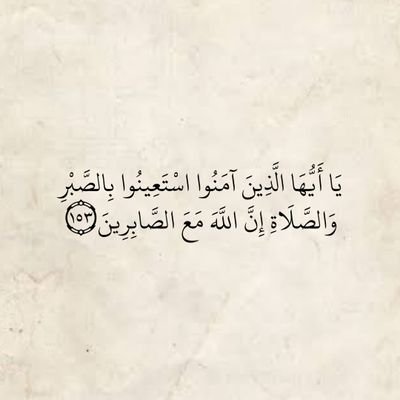 يَا أَيُّهَا الَّذِينَ آمَنُوا اسْتَعِينُوا بِالصَّبْرِ
وَالصَّلَاةِ إِنَّ اللَّهَ مَعَ الصَّابِرِينَ ١٥٣